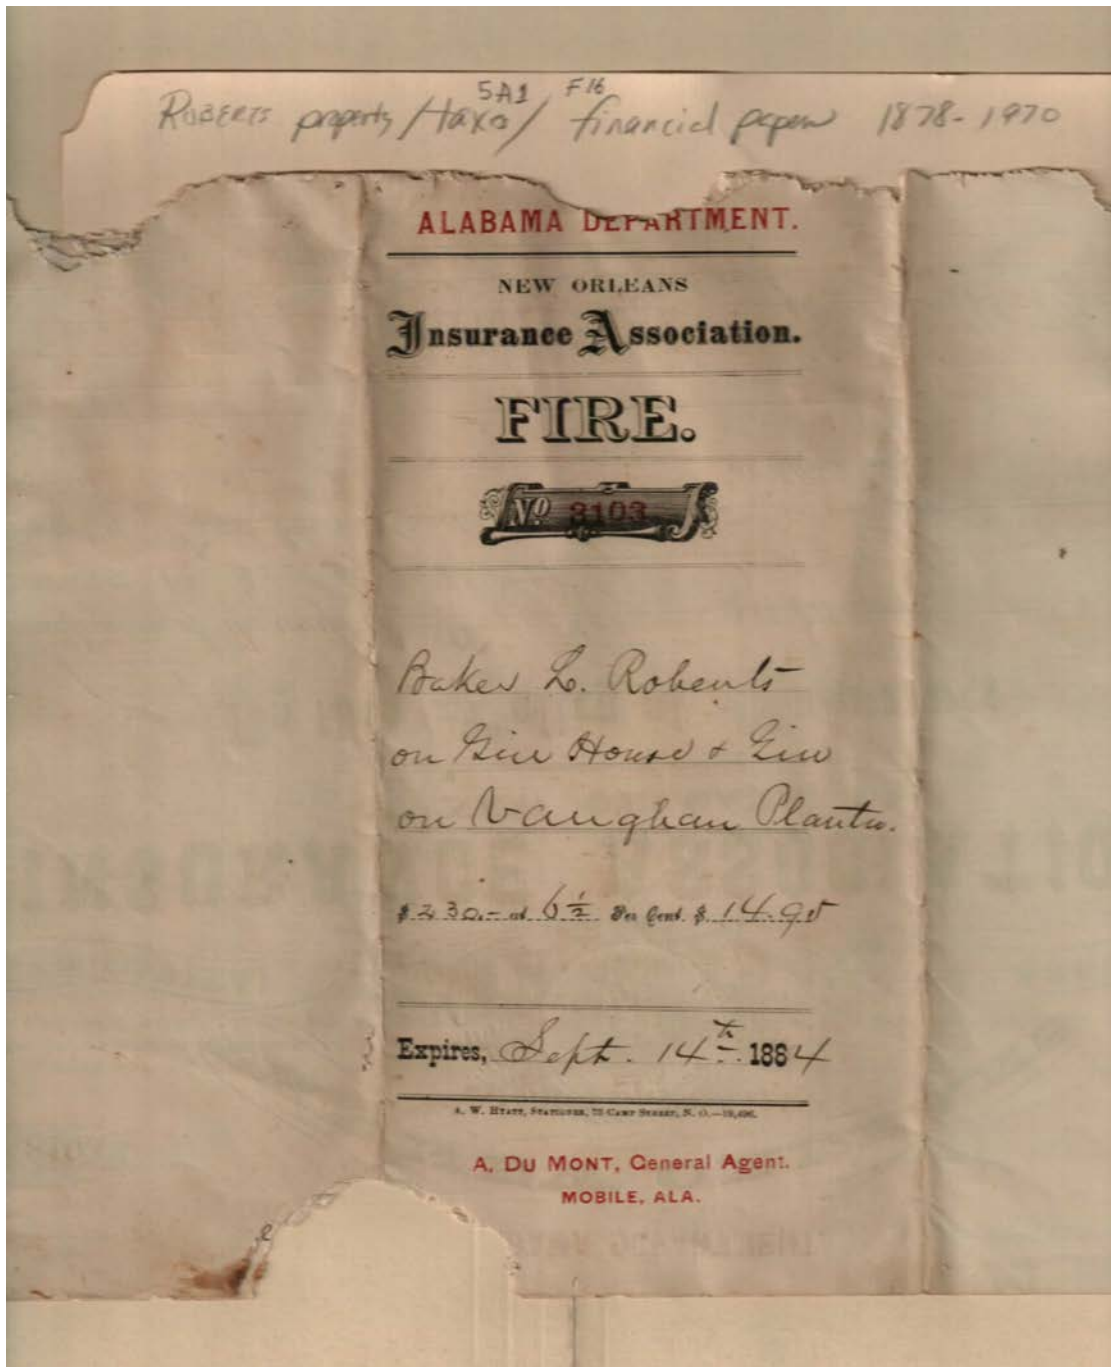 5A1 F16
ROBERTS property/taxo/ financial papers 1878-1970
ALABAMA DEPARTMENT.
NEW ORLEANS
Insurance Association.
FIRE.
No 3103
Baker L. Roberts
on Gin House & Gin
on Vaughan Plantn.
$230.- at 6 1/2 Per Cent. $ 14.95
Expires, Sept. 14th 1884
A. W. HYATT, STATIONER, 73 CAMP STREET, N. O.
A. DU MONT, General Agent.
MOBILE, ALA.